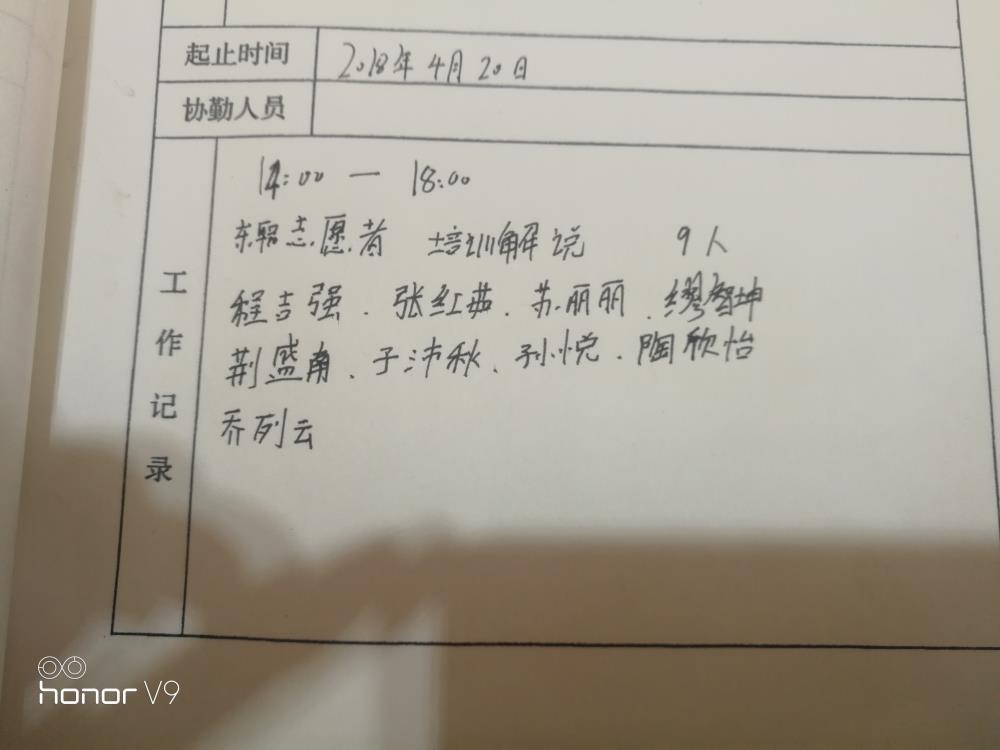 起止时间 2018年4月20日
协勤人员
工作记录
14:00 — 18:00
志愿者 培训解说 9人
程吉强、张红茹、苏丽丽、缪智坤
荆盛南、于沛秋、孙悦、陶欣怡
乔列云
honor V9